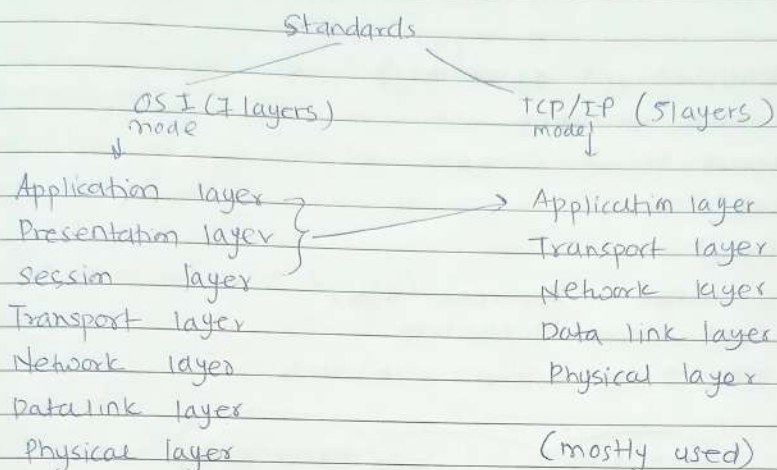 Standards
OSI (7 layers)
mode
TCP/IP (5 layers)
model
Application layer
Presentation layer
Session layer
Transport layer
Network layer
Data link layer
Physical layer
Application layer
Transport layer
Network layer
Data link layer
Physical layer
(mostly used)